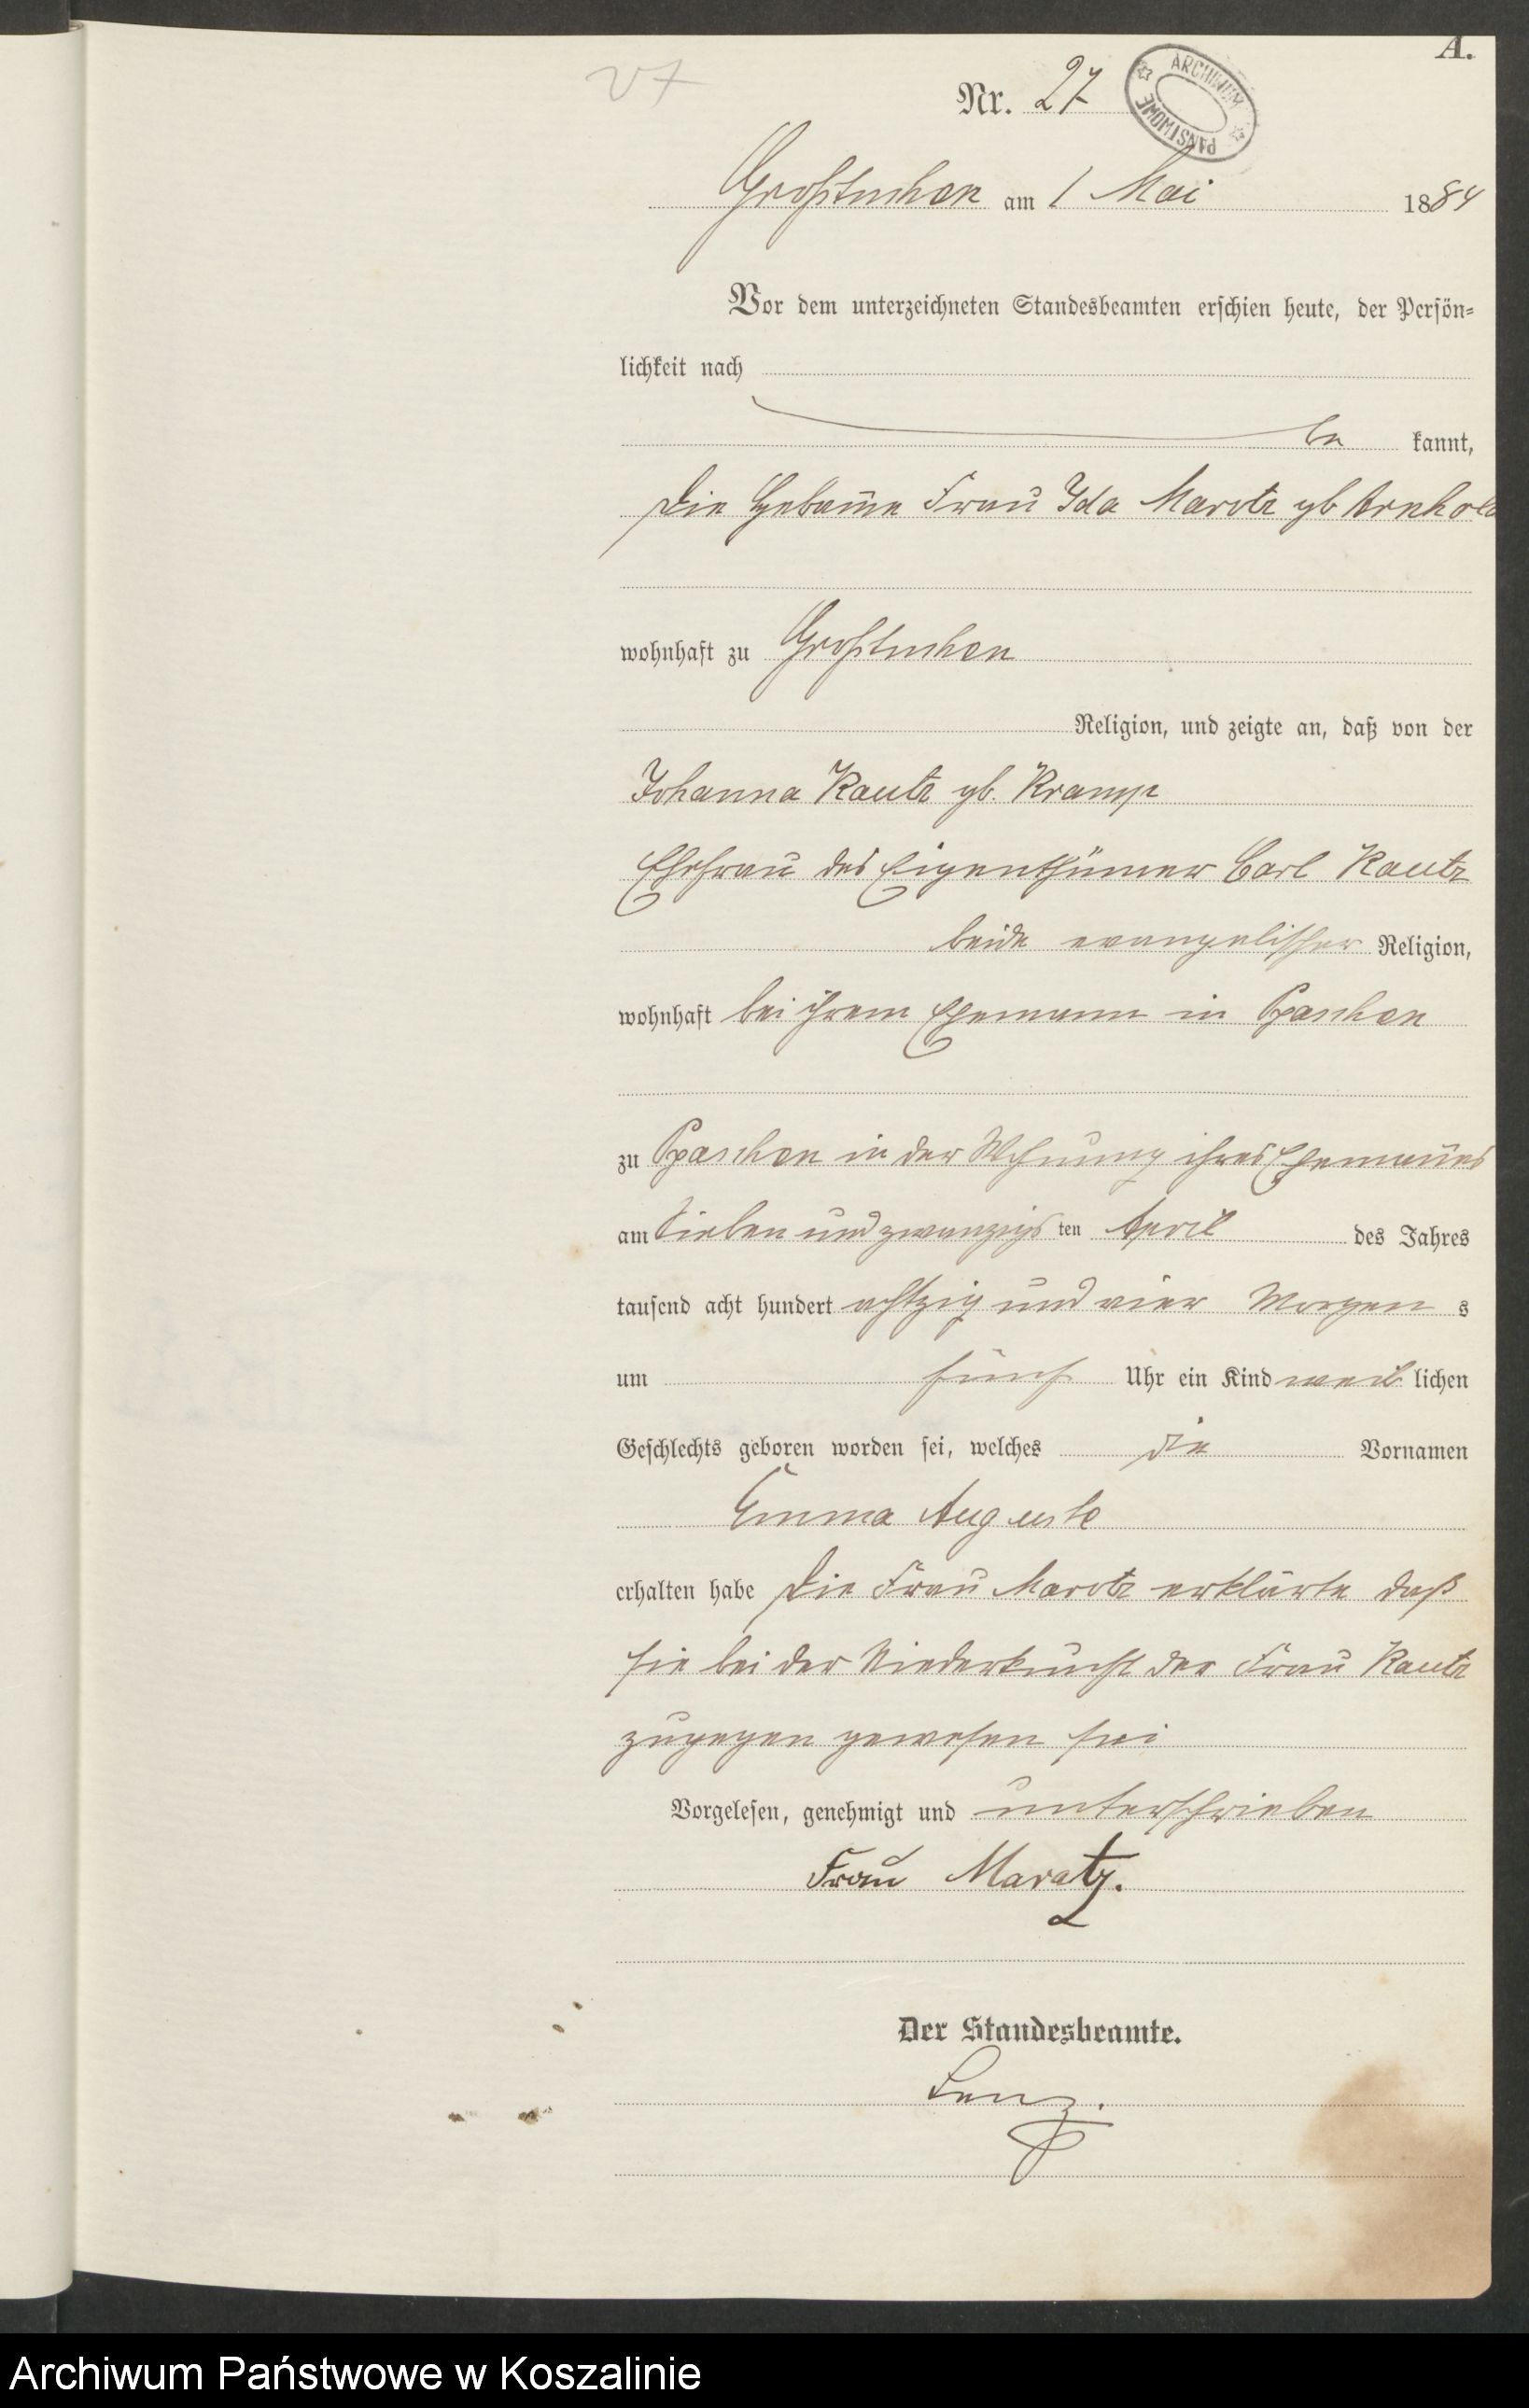 A.
27
Nr. 27
ARCHIWUM PAŃSTWOWE
Großtuchen am 1 Mai 1884
Vor dem unterzeichneten Standesbeamten erschien heute, der Persön-
lichkeit nach
be kannt,
die Hebame Frau Ida Marotz gb Arnhold
wohnhaft zu Großtuchen
Religion, und zeigte an, daß von der
Johanna Kautz gb. Kramp
Ehefrau des Eigenthümer Carl Kautz
beide evangelischer Religion,
wohnhaft bei ihrem Ehemann in
zu in der Wohnung ihres Ehemannes
am Sieben und zwanzigs ten April des Jahres
tausend acht hundert achtzig und vier Morgen s
um fünf Uhr ein Kind weib lichen
Geschlechts geboren worden sei, welches die Vornamen
Emma Auguste
erhalten habe die Frau Marotz erklärte daß
sie bei der Niederkunft der Frau Kautz
zugegen gewesen sei
Vorgelesen, genehmigt und unterschrieben
Frau Maratz.
Der Standesbeamte.
Lenz.
Archiwum Państwowe w Koszalinie